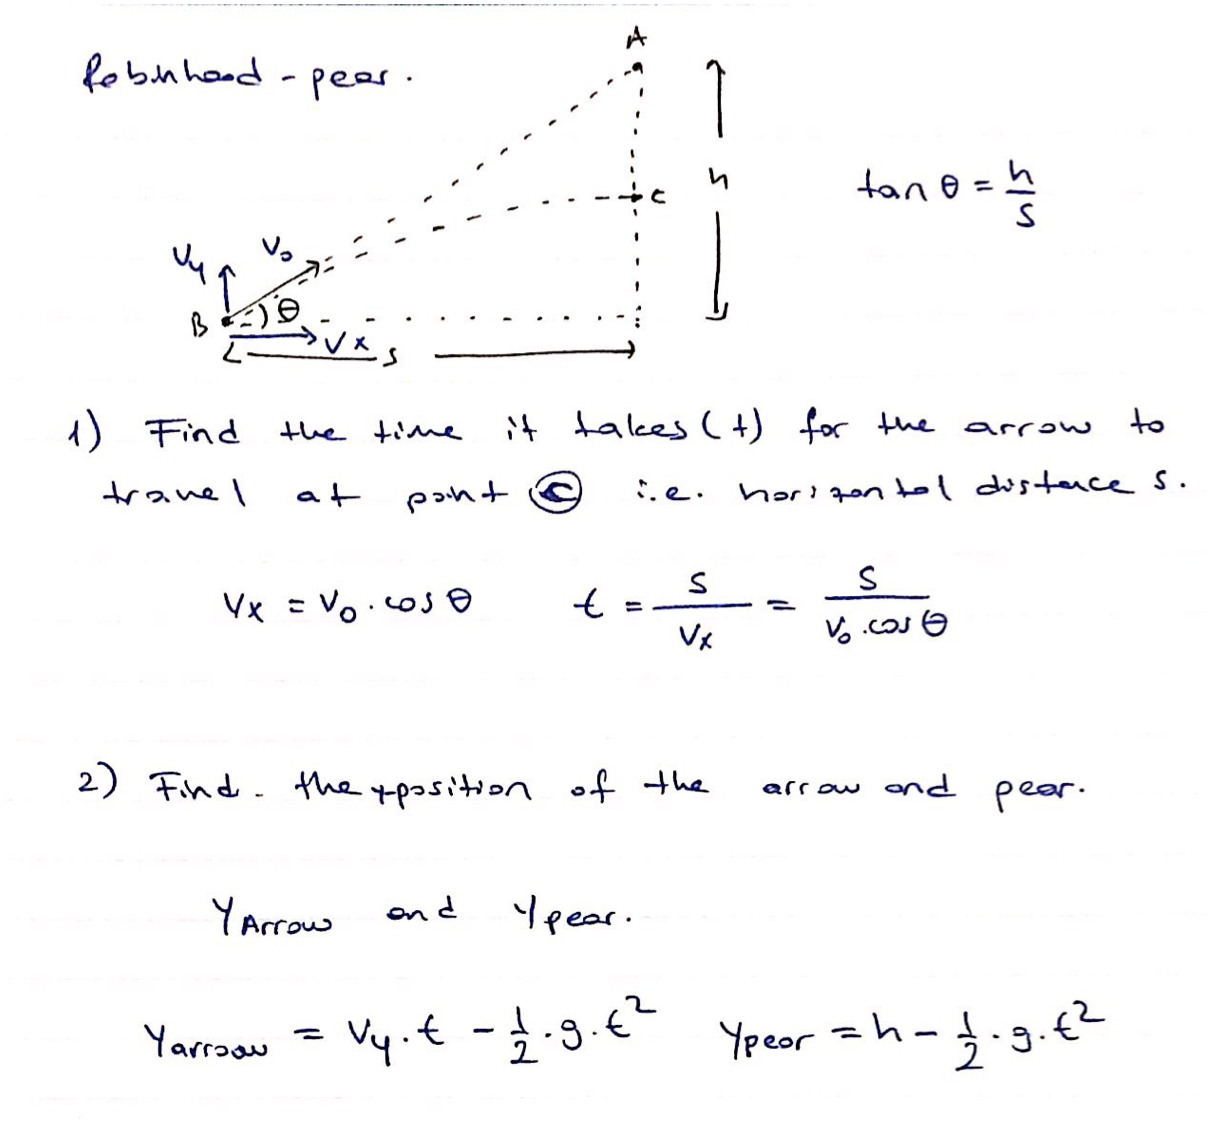 Robinhood - pear.
A
h
tan θ = h/s
C
Vy
V₀
B
θ
Vx
s
1) Find the time it takes (t) for the arrow to
travel at point C i.e. horizontal distance s.
Vx = V₀ . cos θ   t = s/Vx = s/(V₀ .cos θ)
2) Find . the yposition of the arrow and pear.
YArrow and Ypear.
Yarrow = Vy . t - 1/2 . g . t²   Ypear = h - 1/2 . g . t²